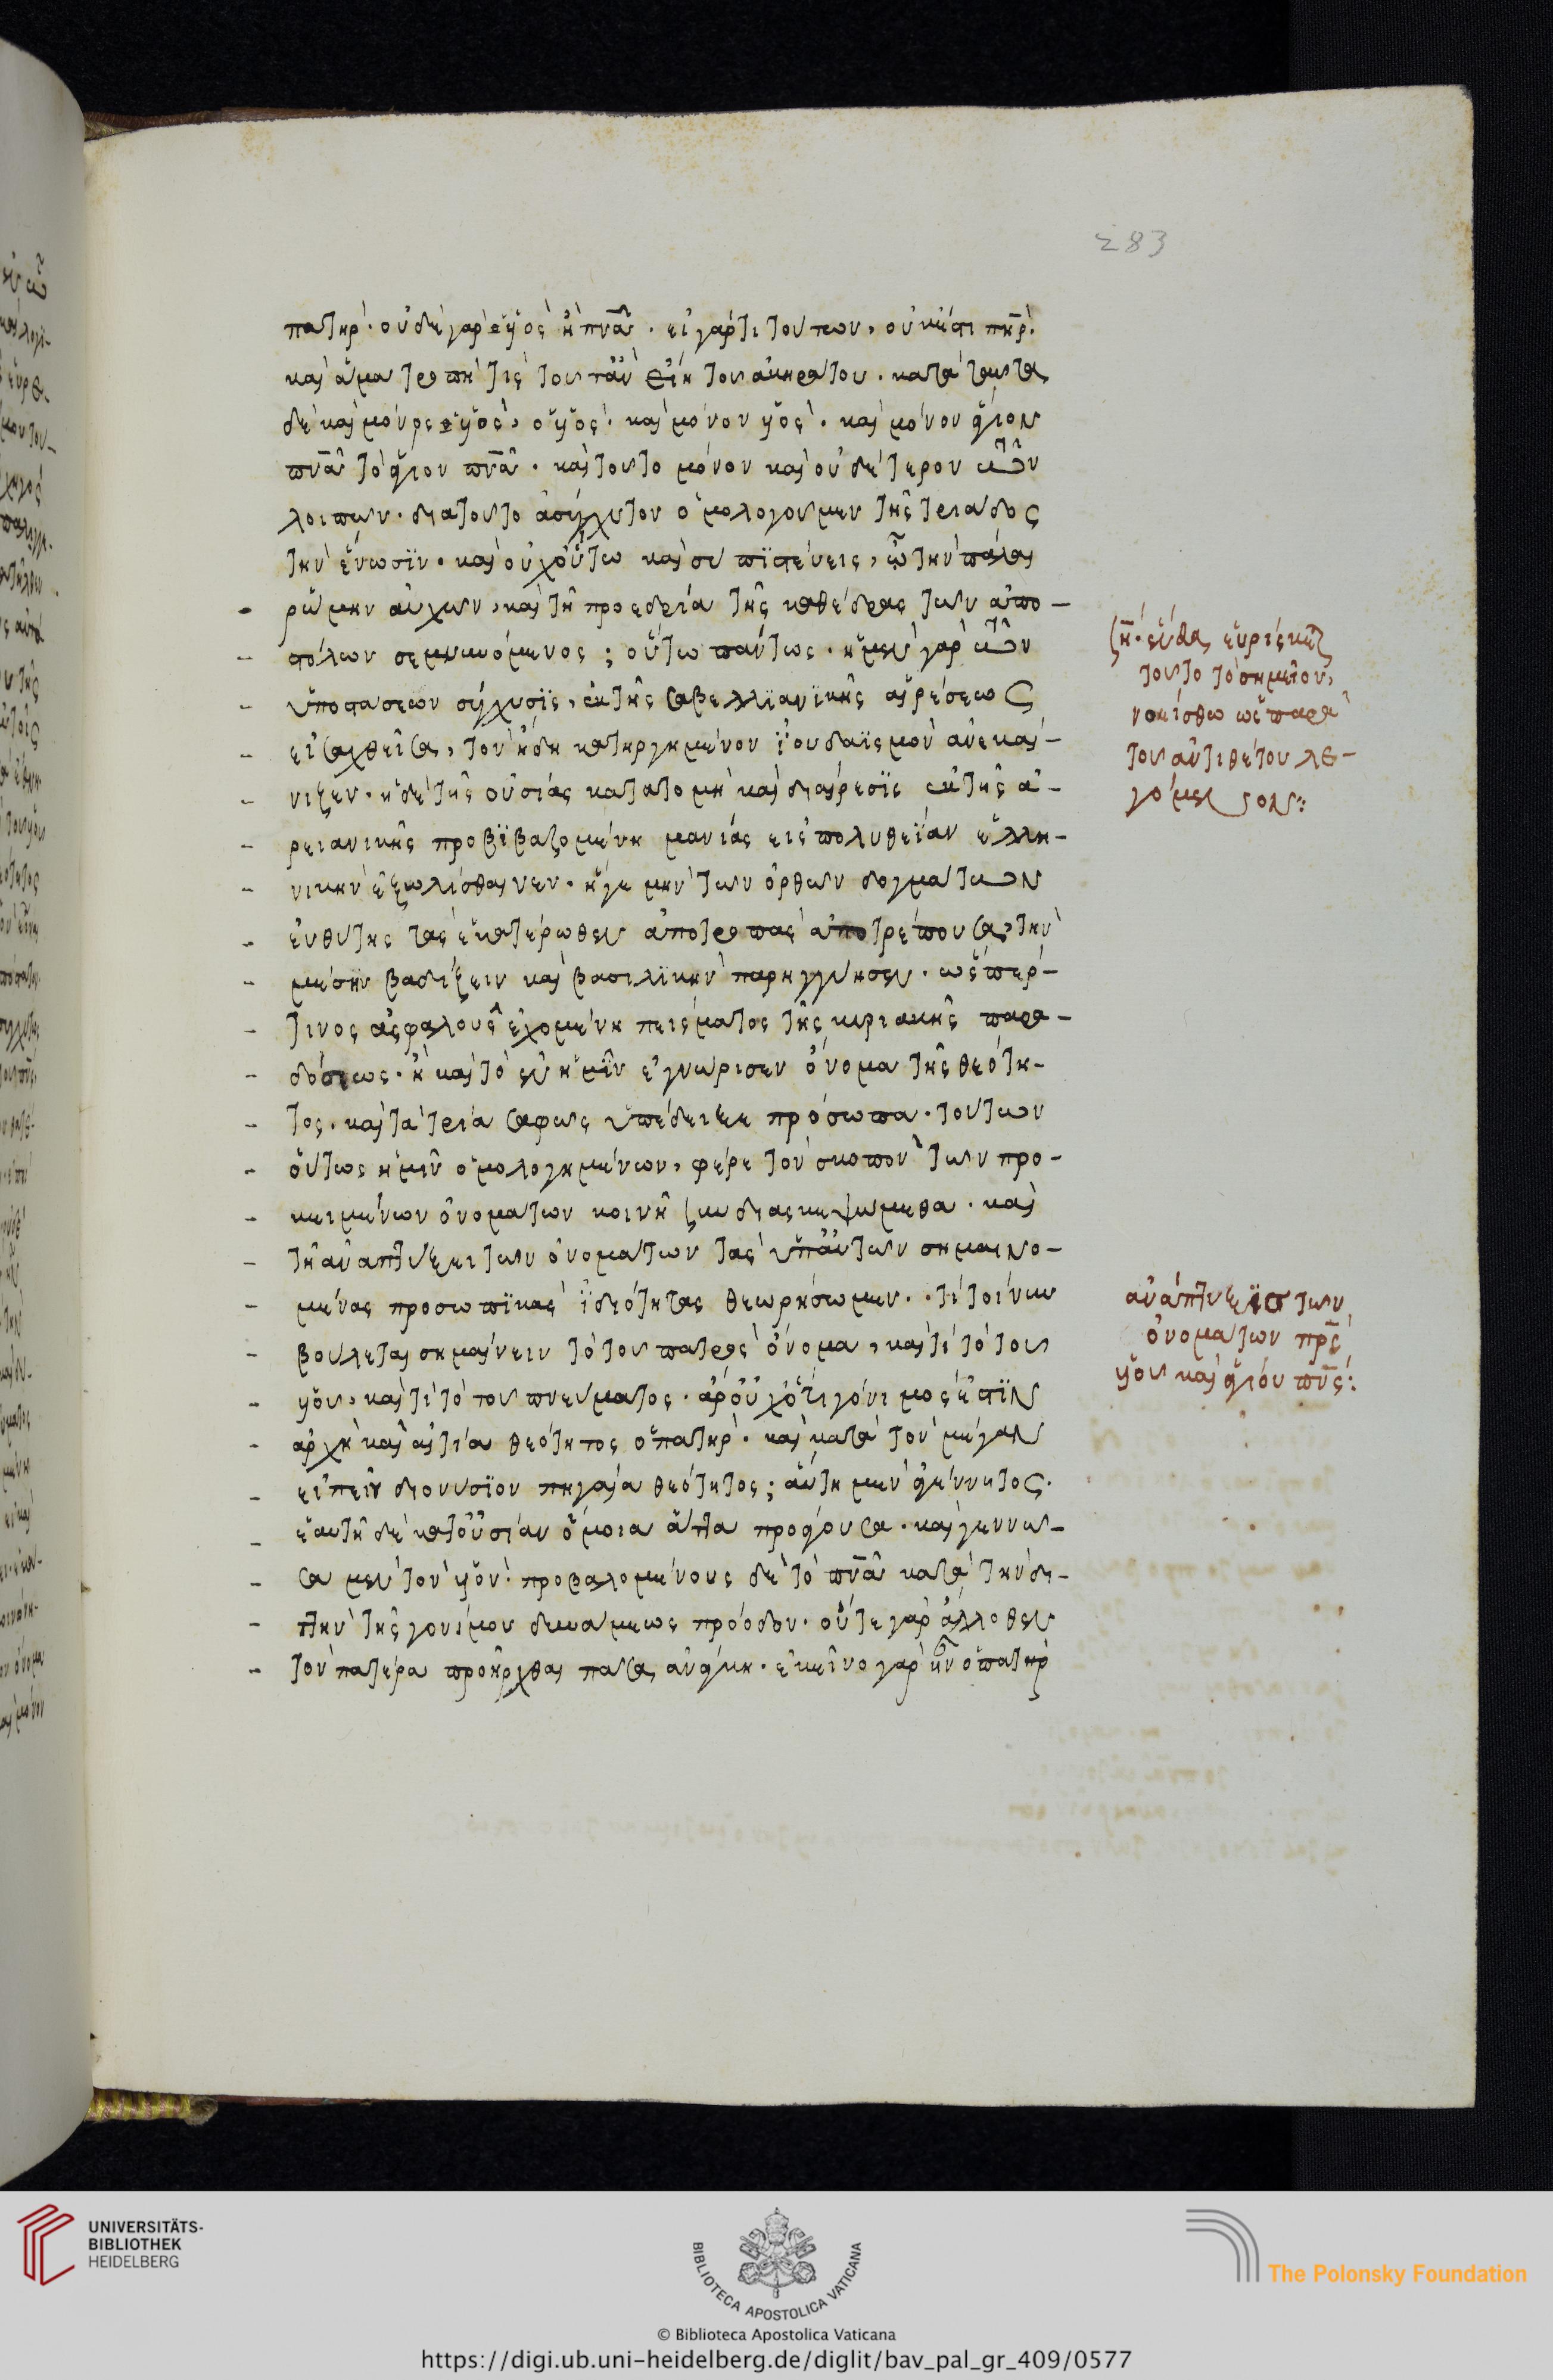 283
πατήρ. οὐδὲ γὰρ ὁ υἱὸς ἢ πνᾶ. εἰ γάρ τι τούτων, οὐκέτι πηρ.
καὶ ἅμα τροπή τις τοῦ πάντη ἀκηράτου. κατὰ ταῦτα
δὲ καὶ μόνος ὁ υἱὸς, ὁ υἱός. καὶ μόνον υἱός. καὶ μόνον ἅγιον
πνᾶ τὸ ἅγιον πνᾶ. καὶ τοῦτο μόνον καὶ οὐδέτερον τῶν
λοιπῶν. διατοῦτο ἀσύγχυτον ὁμολογοῦμεν τῆς τριάδος
τὴν ἕνωσϊν. καὶ οὐχ οὕτω καὶ σὺ πϊστεύεις, ὦ τὴν πάλαι
ῥώμην αὐχῶν, καὶ τῆ προεδρία τῆς καθέδρας τῶν ἀπο-
στόλων σεμνυνόμενος; οὕτω πάντως. ἡ μὲν γὰρ τῶν
ὑποστάσεων σύγχυσϊς, ἐκ τῆς σαβελλϊανϊκῆς αἱρέσεως
εἰσαχθεῖσα, τὸν ἤδη κατηργημένον ϊουδαϊσμὸν ἀνεκαί-
νιζεν. ἡ δὲ τῆς οὐσίας κατατομὴ καὶ διαίρεσϊς ἐκ τῆς ἀ-
ρειανικῆς προβϊβαζομένη μανίας εἰς πολυθεΐαν ἑλλη-
νικὴν ἐξωλίσθαινεν. ἡ γε μὴν τῶν ὀρθῶν δογμάτων
εὐθύτης τὰς ἑκατέρωθεν ἀποτροπὰς ἀποτρέπουσα, τὴν
μέσην βαδίζειν καὶ βασιλϊκὴν παρηγγύησεν. ὥσπερ
τινὸς ἀσφαλοῦς ἐχομένη πείσματος τῆς κυριακῆς παρα-
δόσεως. ἣ καὶ τὸ ἓν ἡμῖν ἐγνώρισεν ὄνομα τῆς θεότη-
τος. καὶ τὰ τρία σαφῶς ὑπέδειξε πρόσωπα. τούτων
οὕτως ἡμῖν ὁμολογημένων, φέρε τὸν σκοπὸν τῶν προ-
κειμένων ὀνομάτων κοινῆ συνδιασκεψώμεθα. καὶ
τῆ ἀναπτύξει τῶν ὀνομάτων τὰς ὑπ' αὐτῶν σημαινο-
μένας προσωπϊκὰς ϊδιότητας θεωρήσωμεν. τί τοίνυν
βούλεται σημαίνειν τὸ τοῦ πατρὸς ὄνομα, καὶ τί τὸ τοῦ
υἱοῦ, καὶ τί τὸ τοῦ πνεύματος. ἆρ' οὐχ ὅτι γόνιμός ἐστϊν
ἀρχὴ καὶ αἰτία θεότητος ὁ πατήρ. καὶ κατὰ τὸν μέγαν
εἰπεῖν διονύσϊον πηγαία θεότητος; αὐτὴ μὲν ἀγέννητος.
ἑαυτῆ δὲ κατ' οὐσίαν ὅμοια ἄττα προάγουσα. καὶ γεννῶ-
σα μὲν τὸν υἱόν. προβαλομένους δὲ τὸ πνᾶ κατὰ τὴν δι-
πλῆν τῆς γονίμου δυνάμεως πρόοδον. οὔτε γὰρ ἄλλοθεν
τὸν πατέρα προῆρχθαι πᾶσα ἀνάγκη. ἐκεῖνο γὰρ ἂν ἦν ὁ πατὴρ
ση. ἔνθα εὑρίσκεται
τοῦτο τὸ σημεῖον,
νοείσθω ὡς παρὰ
τοῦ ἀντιθέτου λε-
γόμενον:
ἀνάπτυξϊσ τῶν
ὀνομάτων πρς
υἱοῦ καὶ ἁγίου πνς:
UNIVERSITÄTS-
BIBLIOTHEK
HEIDELBERG
BIBLIOTECA APOSTOLICA VATICANA
The Polonsky Foundation
© Biblioteca Apostolica Vaticana
https://digi.ub.uni-heidelberg.de/diglit/bav_pal_gr_409/0577